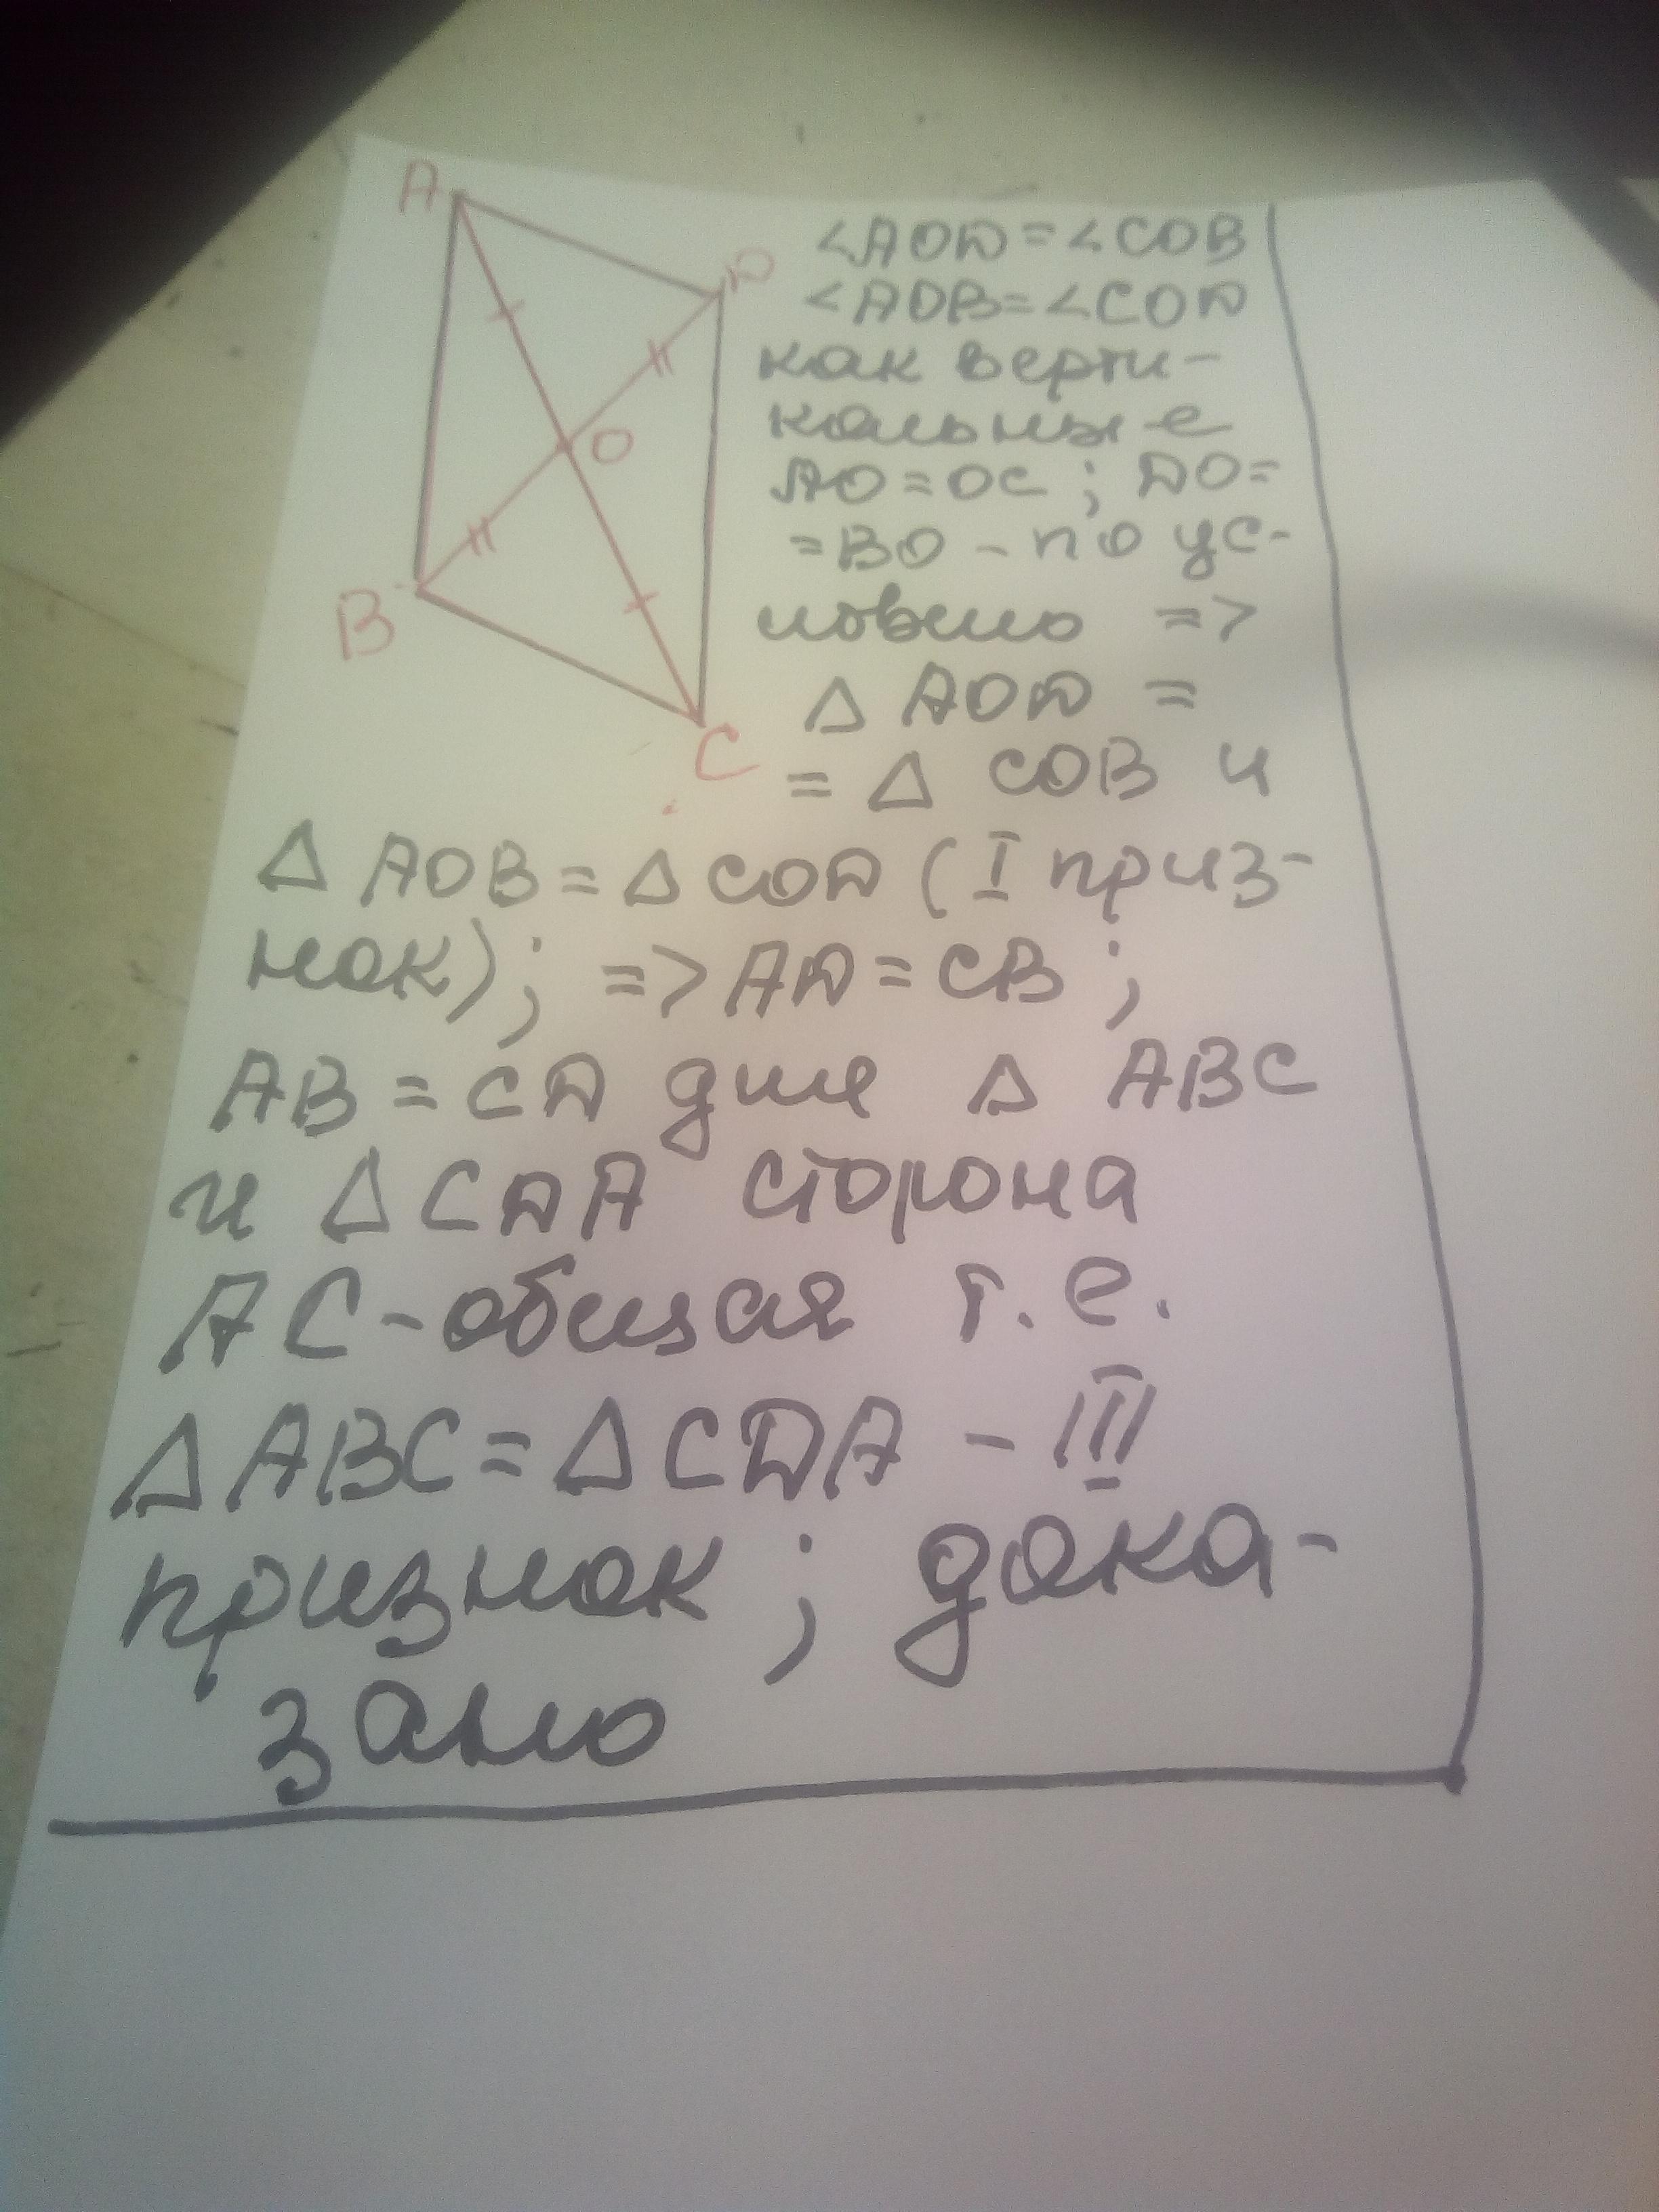 A
D
O
B
C
<AOD=<COB
<AOB=<COD
как верти-
кальные
AO=OC; DO=
=BO-по ус-
ловию =>
Δ AOD =
= Δ COB и
Δ AOB=Δ COD (I приз-
нак); => AD=CB;
AB=CD для Δ ABC
и ΔCDA сторона
AC-общая т.е.
ΔABC=ΔCDA-III
признак; дока-
зано